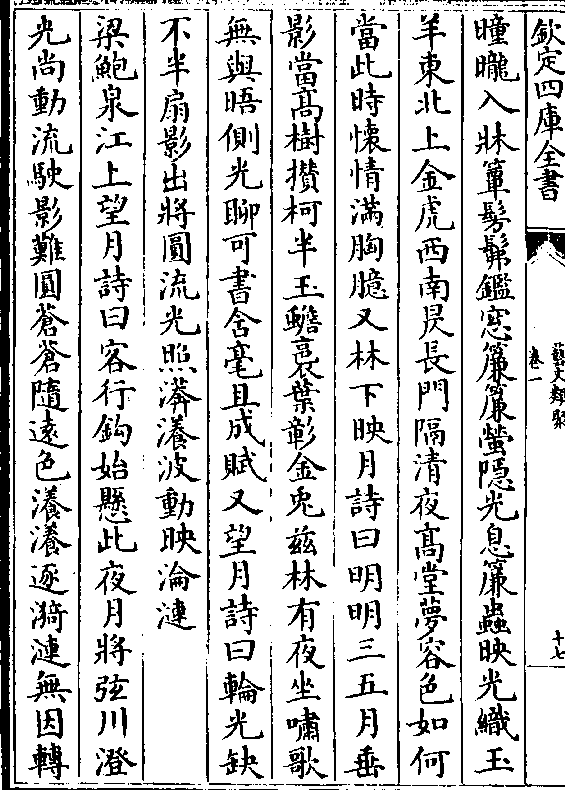 欽定四庫全書
藝文類聚
卷一
十七
曈曨入牀簞髣髴鑑窻簾簾螢隱光息簾蟲映光織玉
羊東北上金虎西南昃長門隔清夜髙堂夢容色如何
當此時懷情滿胸臆又林下映月詩曰明明三五月垂
影當髙樹攅柯半玉蟾裛葉彰金兎兹林有夜坐嘯歌
無與晤側光聊可書含毫且成賦又望月詩曰輪光缺
不半扇影出將圓流光照漭瀁波動映淪漣
梁鮑泉江上望月詩曰客行鈎始懸此夜月將弦川澄
光尚動流駛影難圓蒼蒼隨逺色瀁瀁逐漪漣無因轉